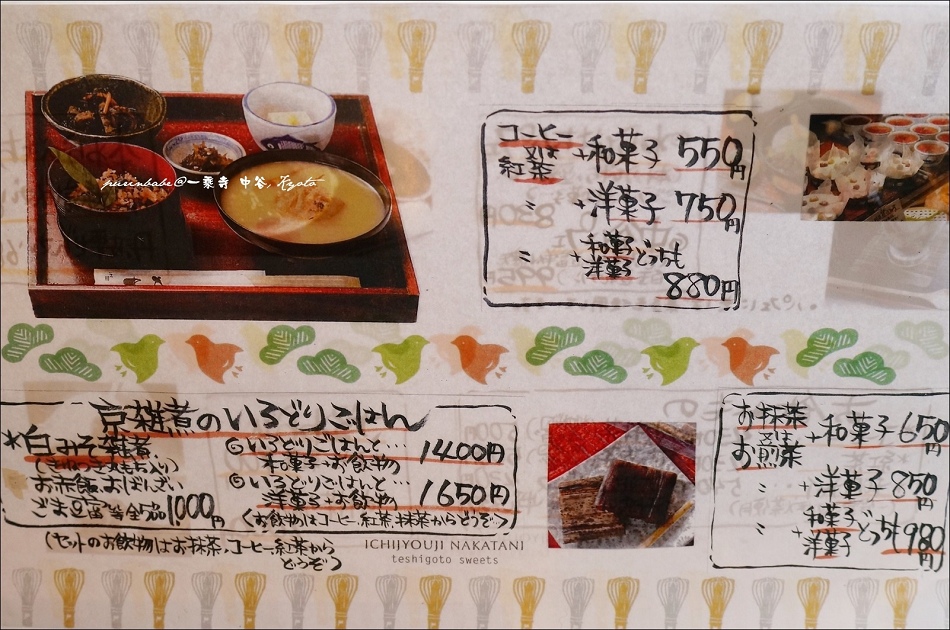 purinbabe@一乗寺 中谷, Kyoto
コーヒー
又は
紅茶
+和菓子 550円
〃 +洋菓子 750円
〃 +和菓子
洋菓子 どっちも
880円
京雑煮のいろどりごはん
*白みそ雑煮
お赤飯、おばんざい
ごま豆腐等全5品 1000円
◎いろどりごはんと…
和菓子+お飲物 1400円
◎いろどりごはんと…
洋菓子+お飲物 1650円
(お飲物はコーヒー、紅茶、抹茶からどうぞ)
(セットのお飲物はお抹茶、コーヒー紅茶から
どうぞ)
ICHIJYOUJI NAKATANI
teshigoto sweets
お抹茶
又は
お煎茶
+和菓子 650円
〃 +洋菓子 850円
〃 +和菓子
洋菓子 どっちも 980円